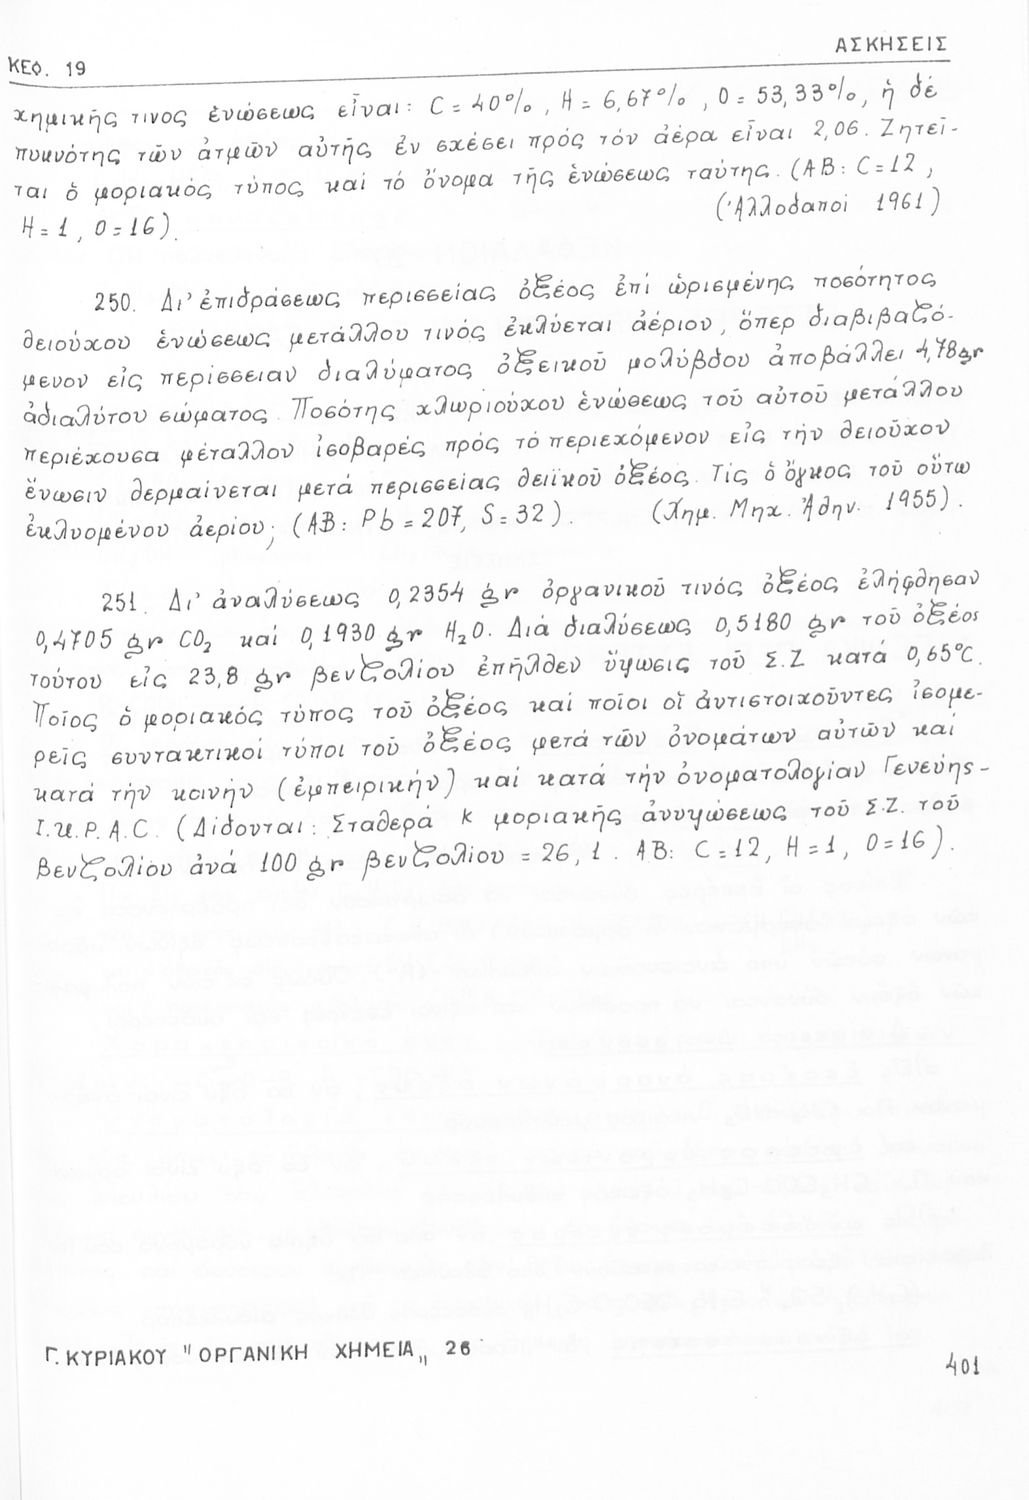 ΚΕΦ. 19
ΑΣΚΗΣΕΙΣ
χημικῆς τινος ἑνώσεως εἶναι: C = 40%, H = 6,67%, O = 53,33%, ἡ δέ
πυκνότης τῶν ἀτμῶν αὐτῆς ἐν σχέσει πρός τόν ἀέρα εἶναι 2,06. Ζητεῖ-
ται ὁ μοριακός τύπος καί τό ὄνομα τῆς ἑνώσεως ταύτης. (ΑΒ: C=12,
H = 1, O = 16). (Ἀλλοδαποί 1961)
250. Δι' ἐπιδράσεως περισσείας ὀξέος ἐπί ὡρισμένης ποσότητος
θειούχου ἑνώσεως μετάλλου τινός ἐκλύεται ἀέριον, ὅπερ διαβιβαζό-
μενον εἰς περίσσειαν διαλύματος ὀξεικοῦ μολύβδου ἀποβάλλει 4,78 gr
ἀδιαλύτου σώματος. Ποσότης χλωριούχου ἑνώσεως τοῦ αὐτοῦ μετάλλου
περιέχουσα μέταλλον ἰσοβαρές πρός τό περιεχόμενον εἰς τήν θειοῦχον
ἕνωσιν θερμαίνεται μετά περισσείας θειϊκοῦ ὀξέος. Τίς ὁ ὄγκος τοῦ οὕτω
ἐκλυομένου ἀερίου; (ΑΒ: Pb = 207, S = 32). (Χημ. Μηχ. Ἀθην. 1955).
251. Δι' ἀναλύσεως 0,2354 gr ὀργανικοῦ τινός ὀξέος ἐλήφθησαν
0,4705 gr CO₂ καί 0,1930 gr H₂O. Διά διαλύσεως 0,5180 gr τοῦ ὀξέος
τούτου εἰς 23,8 gr βενζολίου ἐπῆλθεν ὕψωσις τοῦ Σ.Ζ κατά 0,65°C.
Ποῖος ὁ μοριακός τύπος τοῦ ὀξέος καί ποῖοι οἱ ἀντιστοιχοῦντες ἰσομε-
ρεῖς συντακτικοί τύποι τοῦ ὀξέος μετά τῶν ὀνομάτων αὐτῶν καί
κατά τήν κοινήν (ἐμπειρικήν) καί κατά τήν ὀνοματολογίαν Γενεύης-
I.U.P.A.C. (Δίδονται: Σταθερά k μοριακῆς ἀνυψώσεως τοῦ Σ.Ζ. τοῦ
βενζολίου ἀνά 100 gr βενζολίου = 26,1. ΑΒ: C=12, H=1, O=16).
Γ. ΚΥΡΙΑΚΟΥ "ΟΡΓΑΝΙΚΗ ΧΗΜΕΙΑ„ 26
401